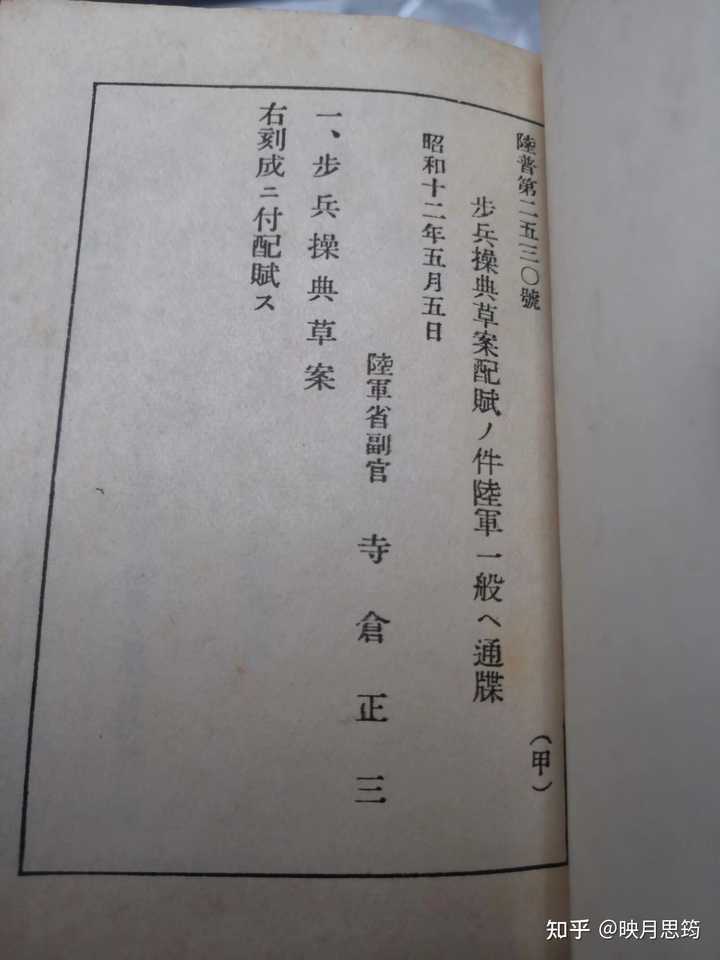 陸普第二五三〇號
步兵操典草案配賦ノ件陸軍一般ヘ通牒
(甲)
昭和十二年五月五日
陸軍省副官 寺倉正三
一、步兵操典草案
右刻成ニ付配賦ス
知乎 @映月思筠